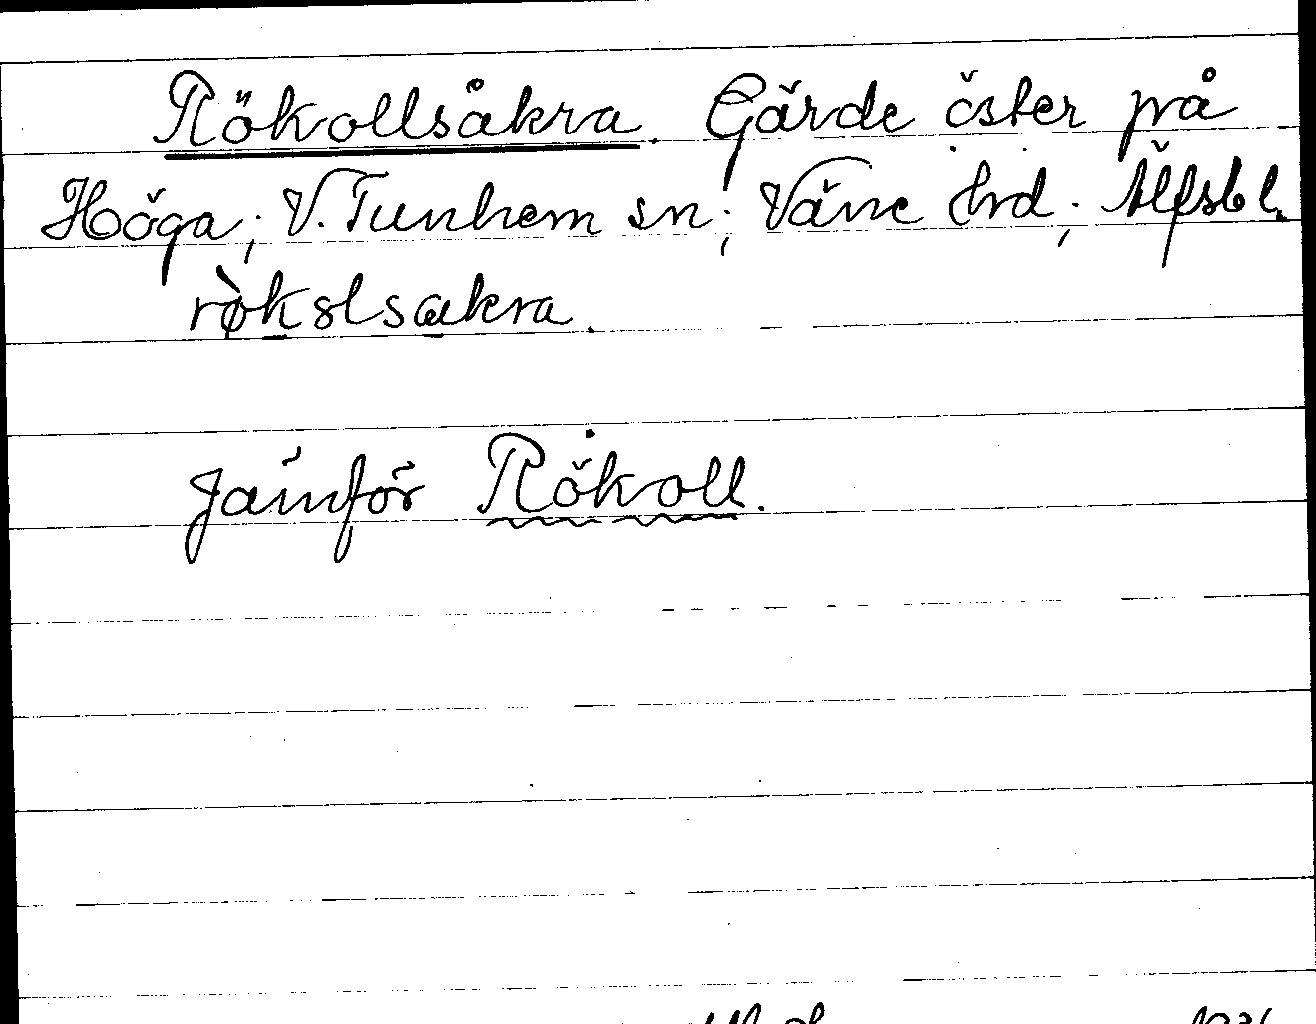 Rökollsåkra. Gärde öster på
Höga; V. Tunhem sn; Väne hd; Älfsb l.
rø̀kɷlsakra.
Jämför Rökoll.